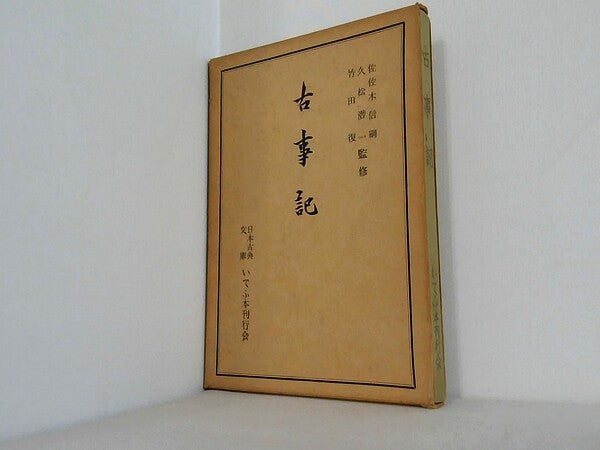 佐佐木信綱
久松潜一監修
竹田復
古事記
日本古典
文庫
いてふ本刊行会
古事記
いてふ本刊行会